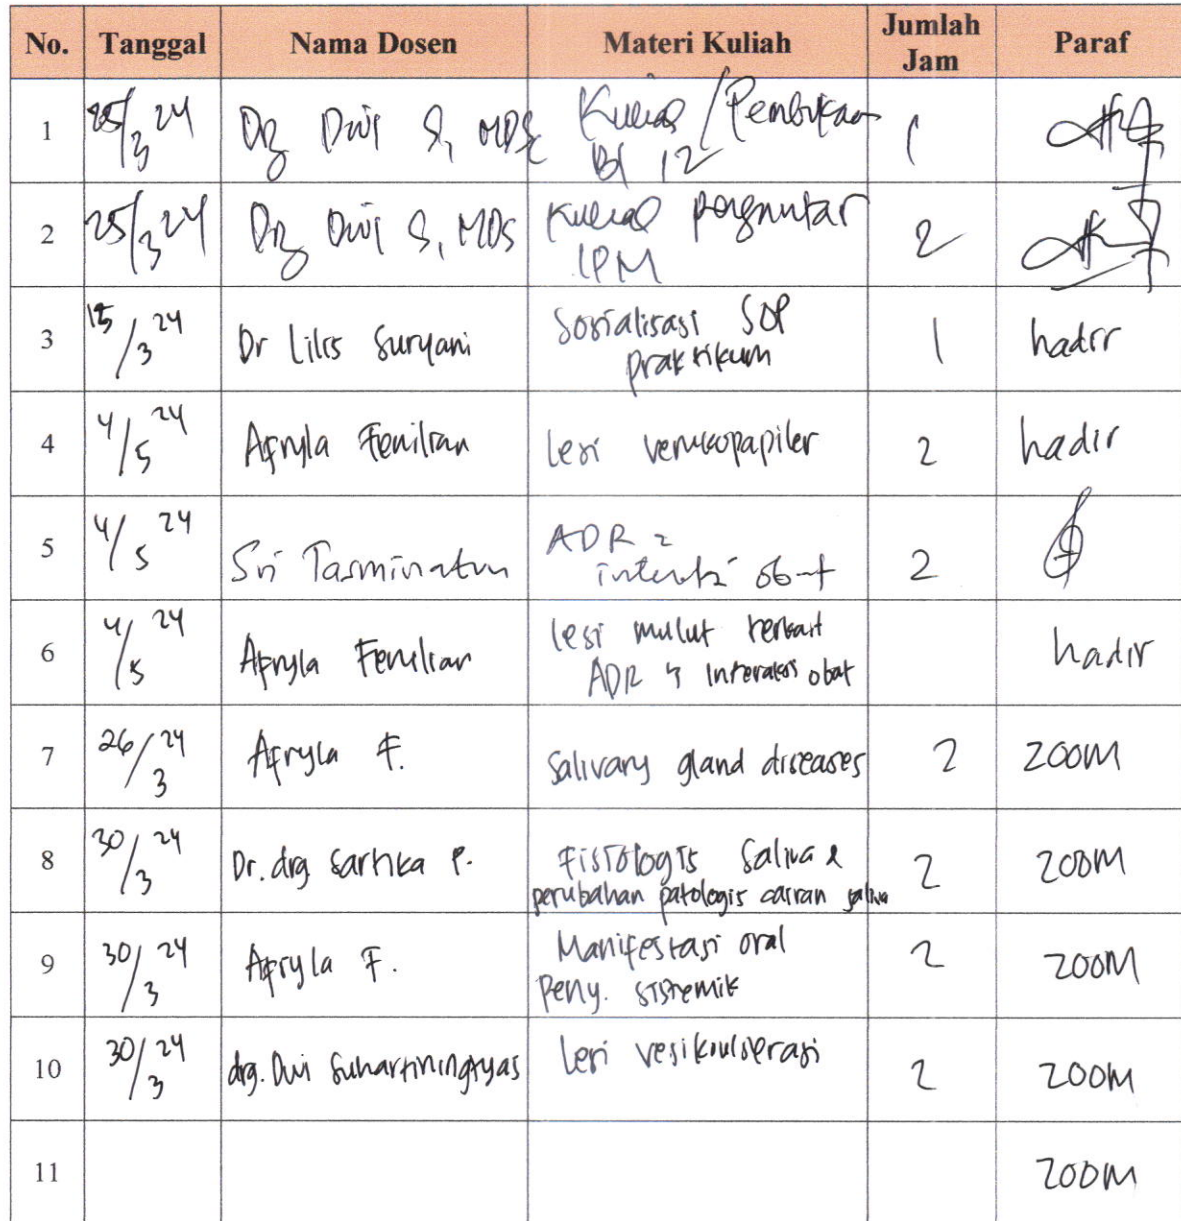 No. Tanggal Nama Dosen Materi Kuliah Jumlah Jam Paraf
1 25/3 24 Drg Dwi S, MDSc Kuliah / Pembukaan Bl 12 1
2 25/3 24 Drg Dwi S, MDS Kuliah pengantar IPM 2
3 15/3 24 Dr Lilis Suryani Sosialisasi SOP praktikum 1 hadir
4 4/5 24 Afryla Femilian lesi verukopapiler 2 hadir
5 4/5 24 Sri Tasminatun ADR interaksi obat 2
6 4/5 24 Afryla Femilian lesi mulut terkait ADR & Interaksi obat hadir
7 26/3 24 Afryla F. Salivary gland diseases 2 ZOOM
8 30/3 24 Dr. drg Sartika P. Fisiologis Saliva & perubahan patologis cairan saliva 2 ZOOM
9 30/3 24 Afryla F. Manifestasi oral Peny. sistemik 2 ZOOM
10 30/3 24 drg. Dwi Suhartiningtyas Lesi vesikoulserasi 2 ZOOM
11 ZOOM